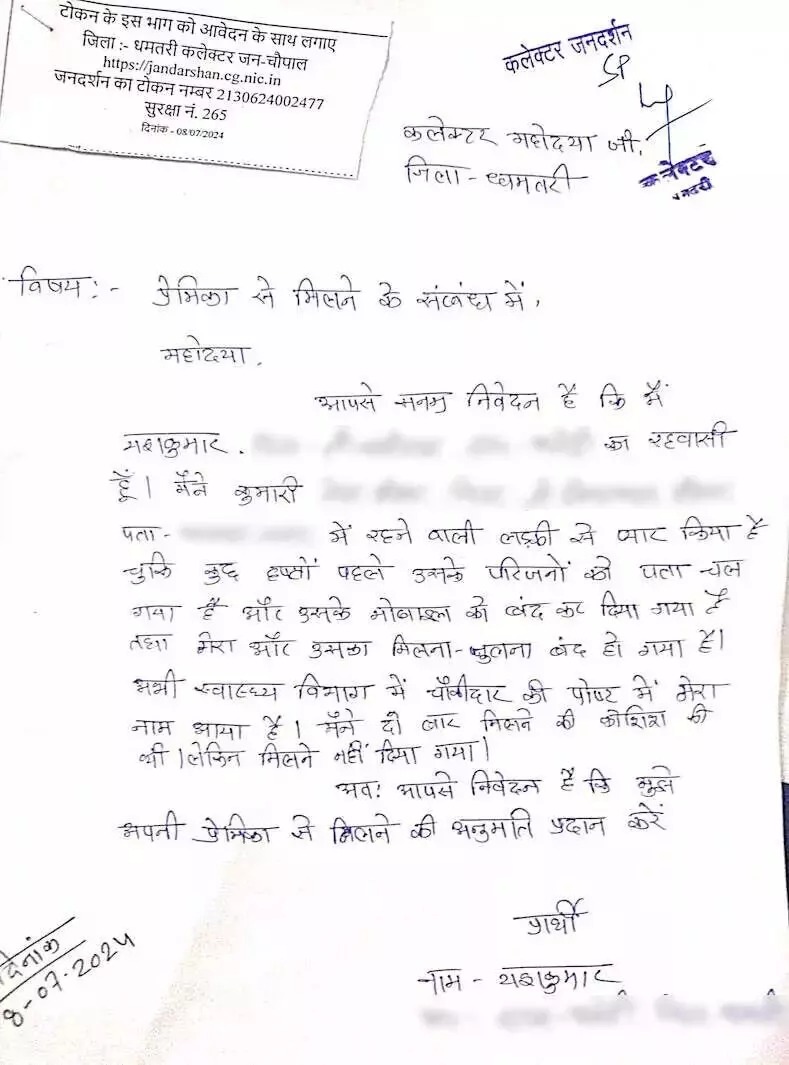 टोकन के इस भाग को आवेदन के साथ लगाए
जिला :- धमतरी कलेक्टर जन-चौपाल
https://jandarshan.cg.nic.in
जनदर्शन का टोकन नम्बर 2130624002477
सुरक्षा नं. 265
दिनांक - 08/07/2024
कलेक्टर जनदर्शन
SP
कलेक्टर महोदया जी,
जिला - धमतरी
कलेक्टर
विषय :- प्रेमिका से मिलने के संबंध में,
महोदया,
आपसे सनम्र निवेदन है कि मैं
यशकुमार. का रहवासी
हूँ। मैंने कुमारी
पता - में रहने वाली लड़की से प्यार किया है
चुकि कुछ हफ्तों पहले उसके परिजनों को पता चल
गया है और उसके मोबाइल को बंद कर दिया गया है
तथा मेरा और उसका मिलना-जुलना बंद हो गया है।
अभी स्वास्थ्य विभाग में चौकीदार की पोस्ट में मेरा
नाम आया है। मैंने दो बार मिलने की कोशिश की
थी। लेकिन मिलने नहीं दिया गया।
अतः आपसे निवेदन है कि मुझे
अपनी प्रेमिका से मिलने की अनुमति प्रदान करें
प्रार्थी
नाम - यशकुमार
दिनांक
8-07-2024